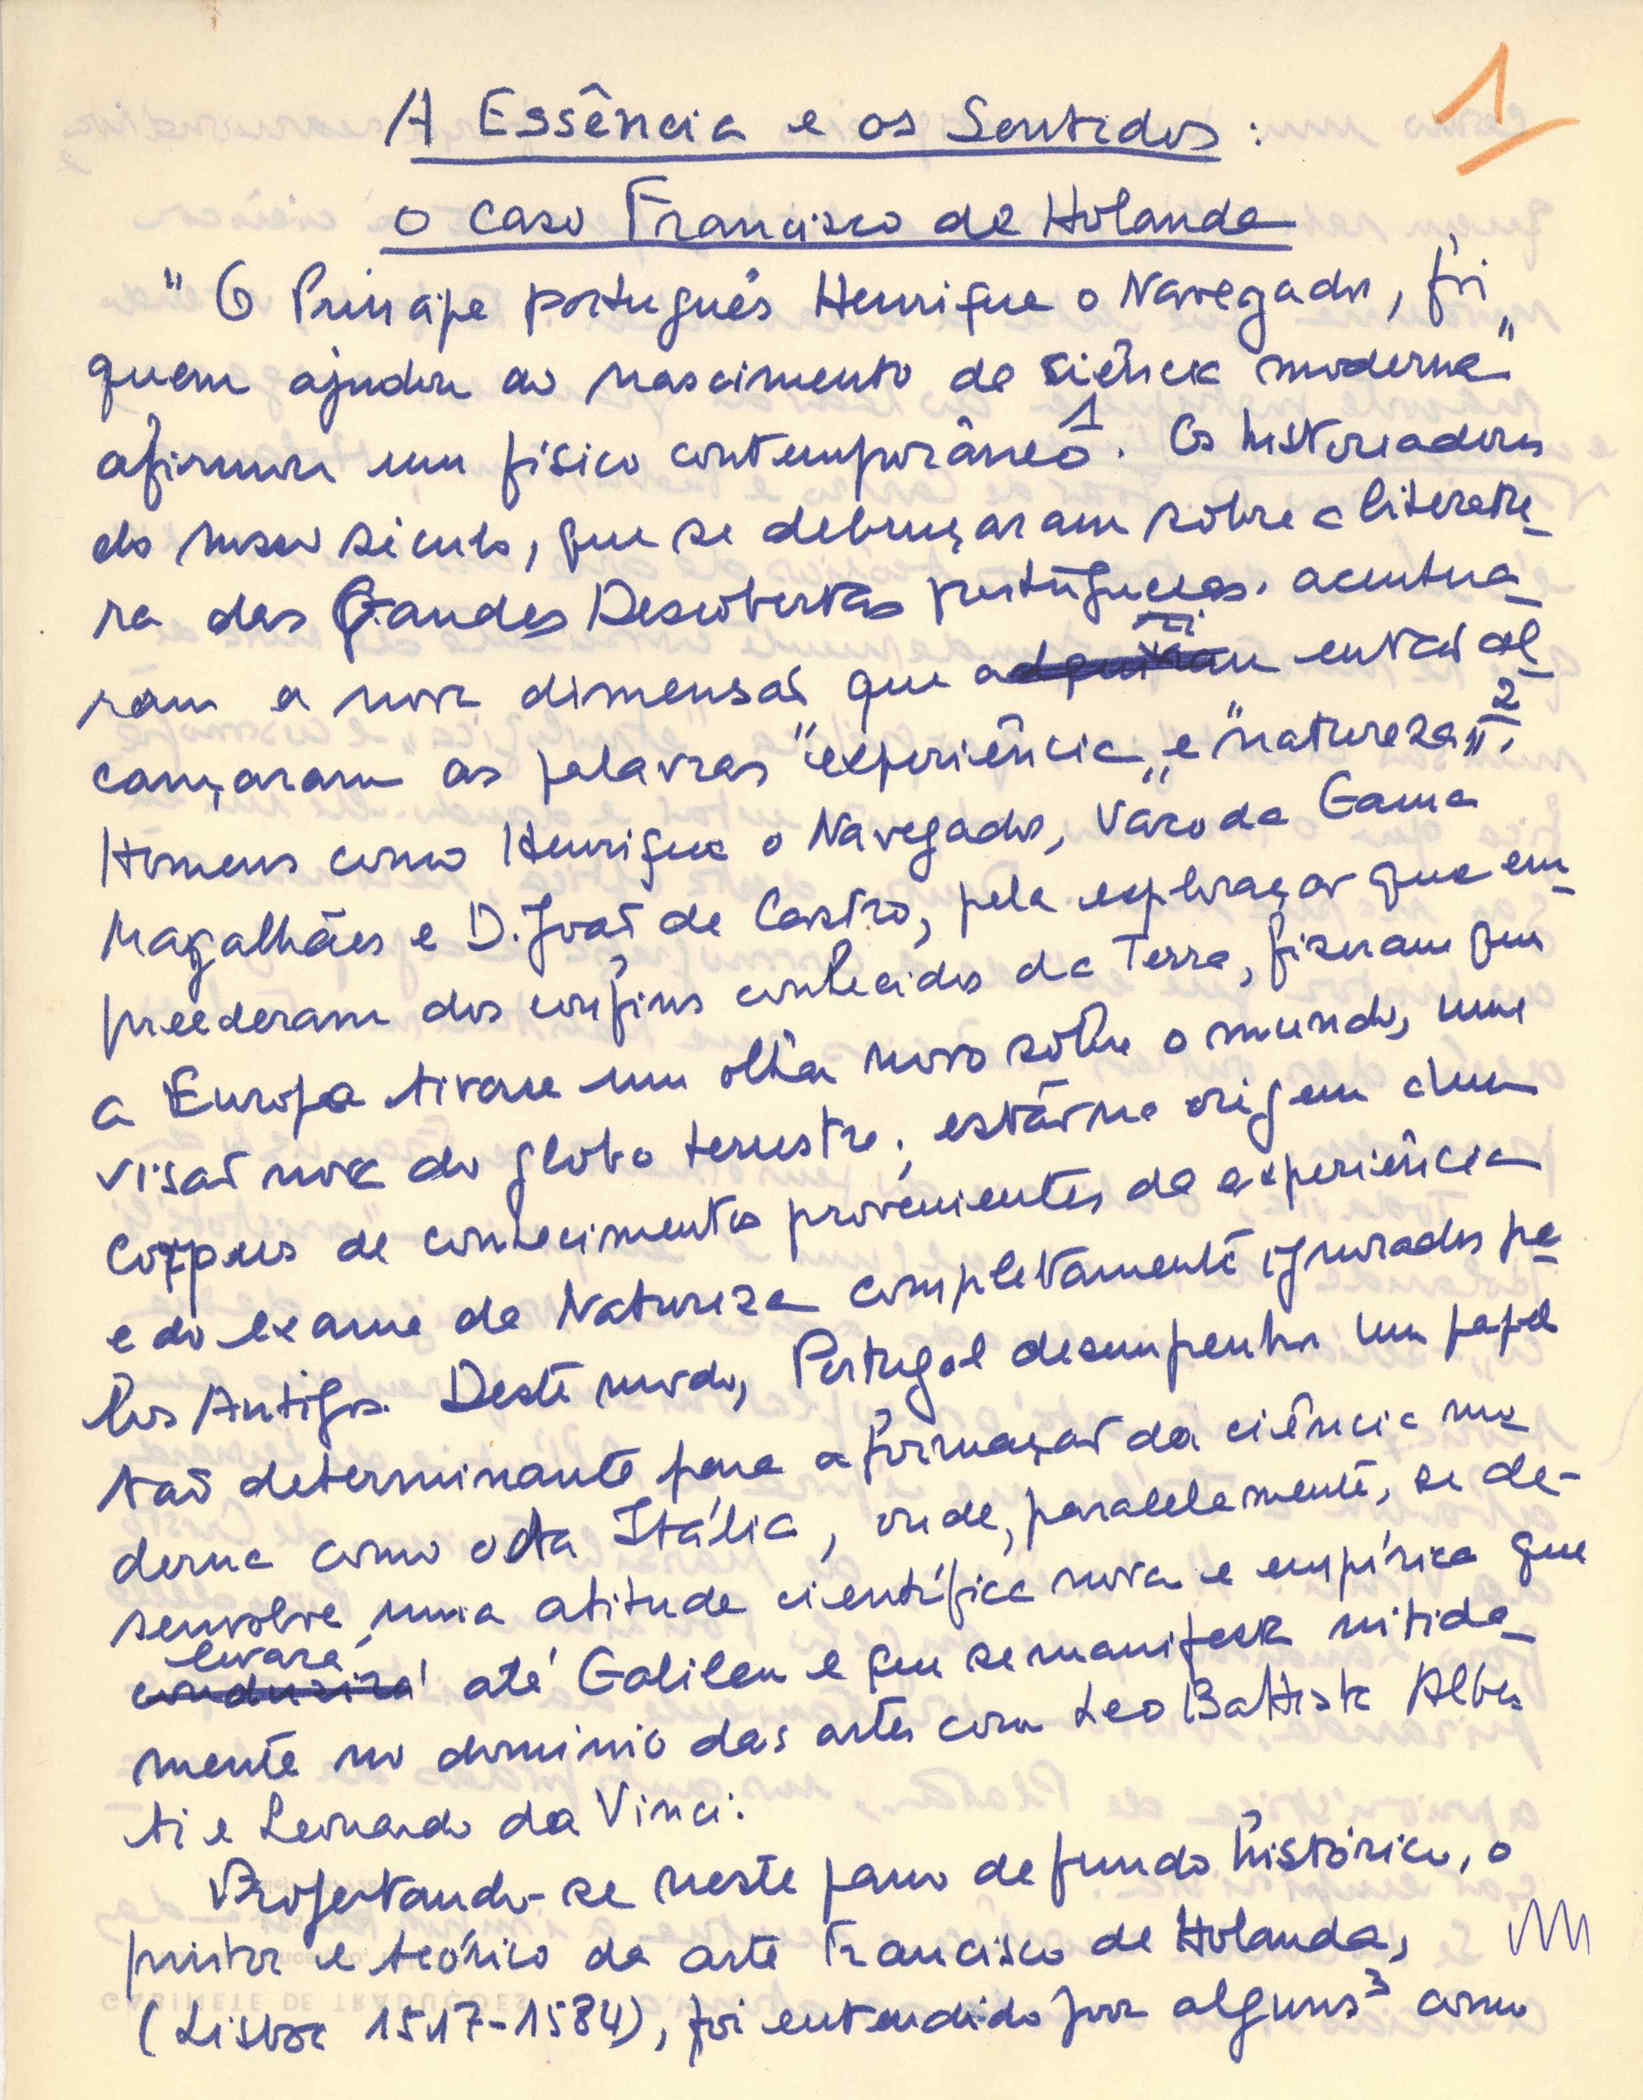 1
A Essência e os Sentidos :
o caso Francisco de Holanda
" O Príncipe português Henrique o Navegador, foi
quem ajudou ao nascimento da ciência moderna"
afirmou um físico contemporâneo 1. Os historiadores
do nosso século, que se debruçaram sôbre a literatu-
ra das Grandes Descobertas portuguesas. acentua-
ram a nova dimensão que então al-
cançaram as palavras "experiência" e "natureza" 2.
Homens como Henrique o Navegador, Vasco da Gama
Magalhães e D. João de Castro, pela exploração que em-
preederam dos confins conhecidos da Terra, fizeram que
a Europa tivesse um olhar novo sôbre o mundo, uma
visão nova do globo terrestre; estão na origem dum
corpus de conhecimentos provenientes da experiência
e do exame da Natureza completamente ignorados pe-
los Antigos. Deste modo, Portugal desempenha um papel
tão determinante para a formação da ciência mo-
derna como o da Itália, onde, paralelamente, se de-
senvolve uma atitude científica nova e empírica que
levará
conduzirá até Galileu e que se manifesta nitida-
mente no dominio das artes com Leo Battista Alber
ti e Leonardo da Vinci.
Projectando-se neste pano de fundo histórico, o
pintor e teórico da arte Francisco de Holanda,
(Lisboa 1517-1584), foi entendido por alguns 3 como
GABINETE DE TRADUÇÕES